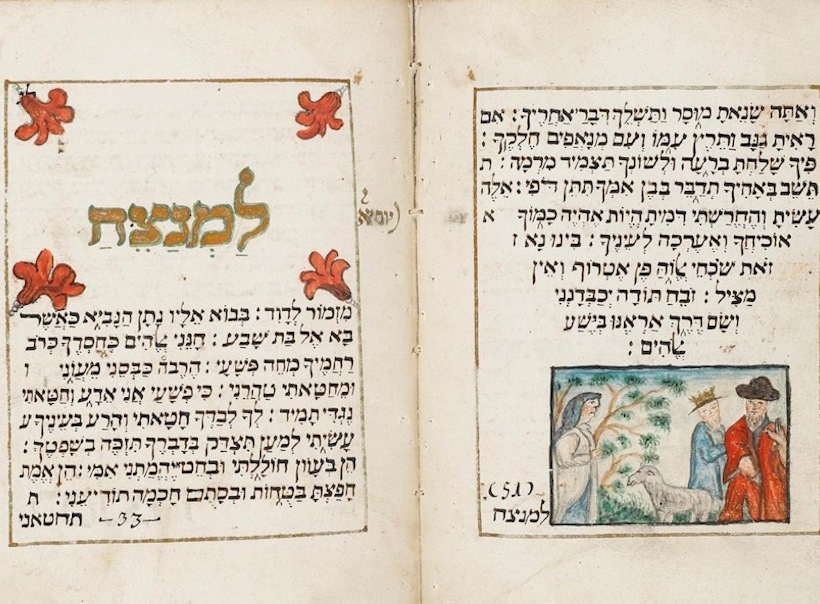 וְאַתָּה שָׂנֵאתָ מוּסָר וַתַּשְׁלֵךְ דְּבָרַי אַחֲרֶיךָ : אִם
רָאִיתָ גַנָּב וַתִּרֶץ עִמּוֹ וְעִם מְנָאֲפִים חֶלְקֶךָ :
פִּיךָ שָׁלַחְתָּ בְרָעָה וּלְשׁוֹנְךָ תַּצְמִיד מִרְמָה : ת
תֵּשֵׁב בְּאָחִיךָ תְדַבֵּר בְּבֶן אִמְּךָ תִּתֶּן דֹּפִי : אֵלֶּה
עָשִׂיתָ וְהֶחֱרַשְׁתִּי דִּמִּיתָ הֱיוֹת אֶהְיֶה כָמוֹךָ א
אוֹכִיחֲךָ וְאֶעֶרְכָה לְעֵינֶיךָ : בִּינוּ נָא ז
זֹאת שֹׁכְחֵי אֱלוֹהַּ פֶּן אֶטְרוֹף וְאֵין
מַצִּיל : זֹבֵחַ תּוֹדָה יְכַבְּדָנְנִי
וְשָׂם דֶּרֶךְ אַרְאֶנּוּ בְּיֵשַׁע
אֱלֹהִים :
(51).
למנצח
לַמְנַצֵּחַ
מִזְמוֹר לְדָוִד : בְּבוֹא אֵלָיו נָתָן הַנָּבִיא כַּאֲשֶׁר
בָּא אֶל בַּת שָׁבַע : חָנֵּנִי אֱלֹהִים כְּחַסְדֶּךָ כְּרֹב
רַחֲמֶיךָ מְחֵה פְשָׁעָי : הֶרֶבה כַּבְּסֵנִי מֵעֲוֹנִי ו
וּמֵחַטָּאתִי טַהֲרֵנִי : כִּי פְשָׁעַי אֲנִי אֵדָע וְחַטָּאתִי
נֶגְדִּי תָמִיד : לְךָ לְבַדְּךָ חָטָאתִי וְהָרַע בְּעֵינֶיךָ ע
עָשִׂיתִי לְמַעַן תִּצְדַּק בְּדָבְרֶךָ תִּזְכֶּה בְשָׁפְטֶךָ :
הֵן בְּעָווֹן חוֹלָלְתִּי וּבְחֵטְא יֶחֱמַתְנִי אִמִּי : הֵן אֱמֶת
חָפַצְתָּ בַטֻּחוֹת וּבְסָתֻם חָכְמָה תוֹדִיעֵנִי : ת
תחטאני -33-